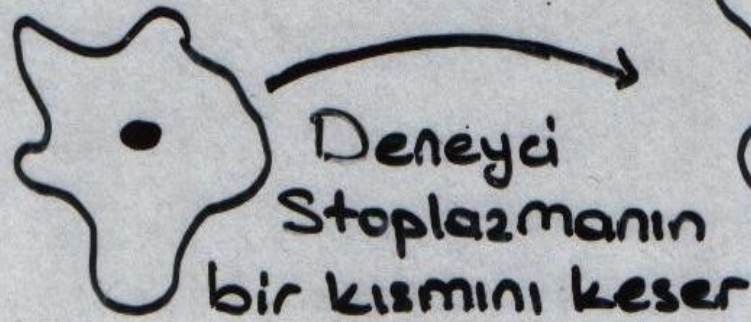 Deneyci
Stoplazmanın
bir kısmını keser